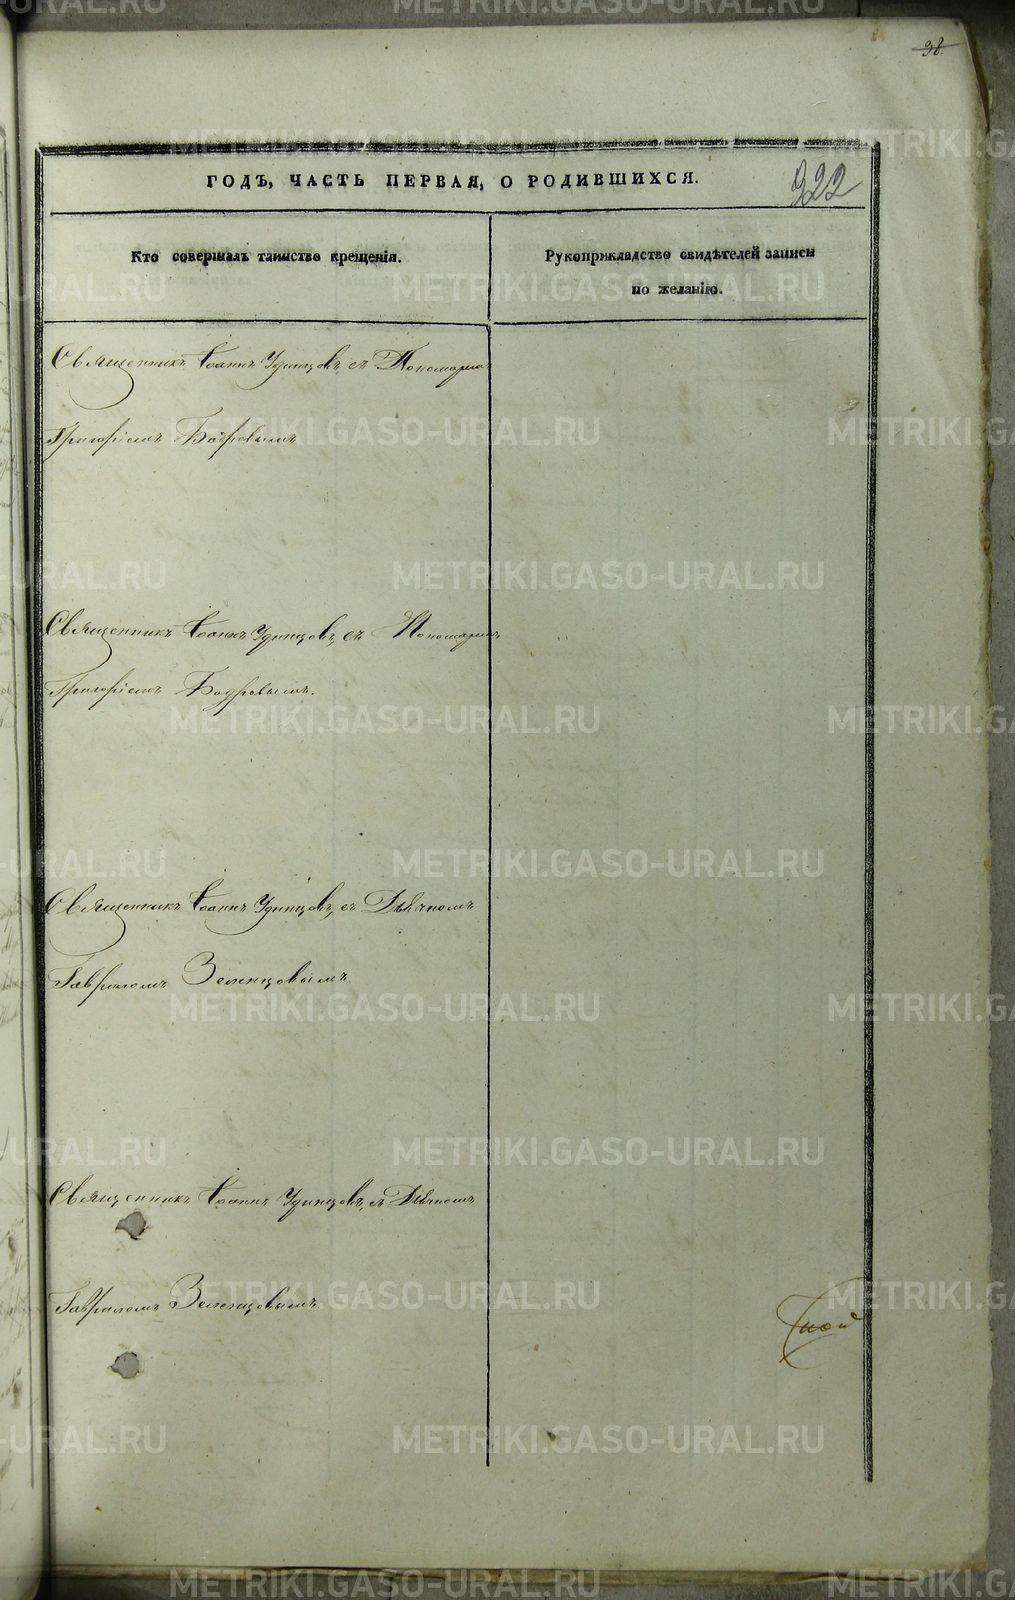 38.
ГОДЪ, ЧАСТЬ ПЕРВАЯ, О РОДИВШИХСЯ.
322
Кто совершалъ таинство крещенія.
Рукоприкладство свидѣтелей записи
по желанію.
Священникъ Іоаннъ Удинцовъ, съ Пономаремъ
Григоріемъ Бодровымъ
Священникъ Іоаннъ Удинцовъ, съ Пономаремъ
Григоріемъ Бодровымъ.
Священникъ Іоаннъ Удинцовъ, съ Дьячкомъ
Гавриломъ Зеленцовымъ.
Священникъ Іоаннъ Удинцовъ, съ Дьячкомъ
Гавриломъ Зеленцовымъ
METRIKI.GASO-URAL.RU